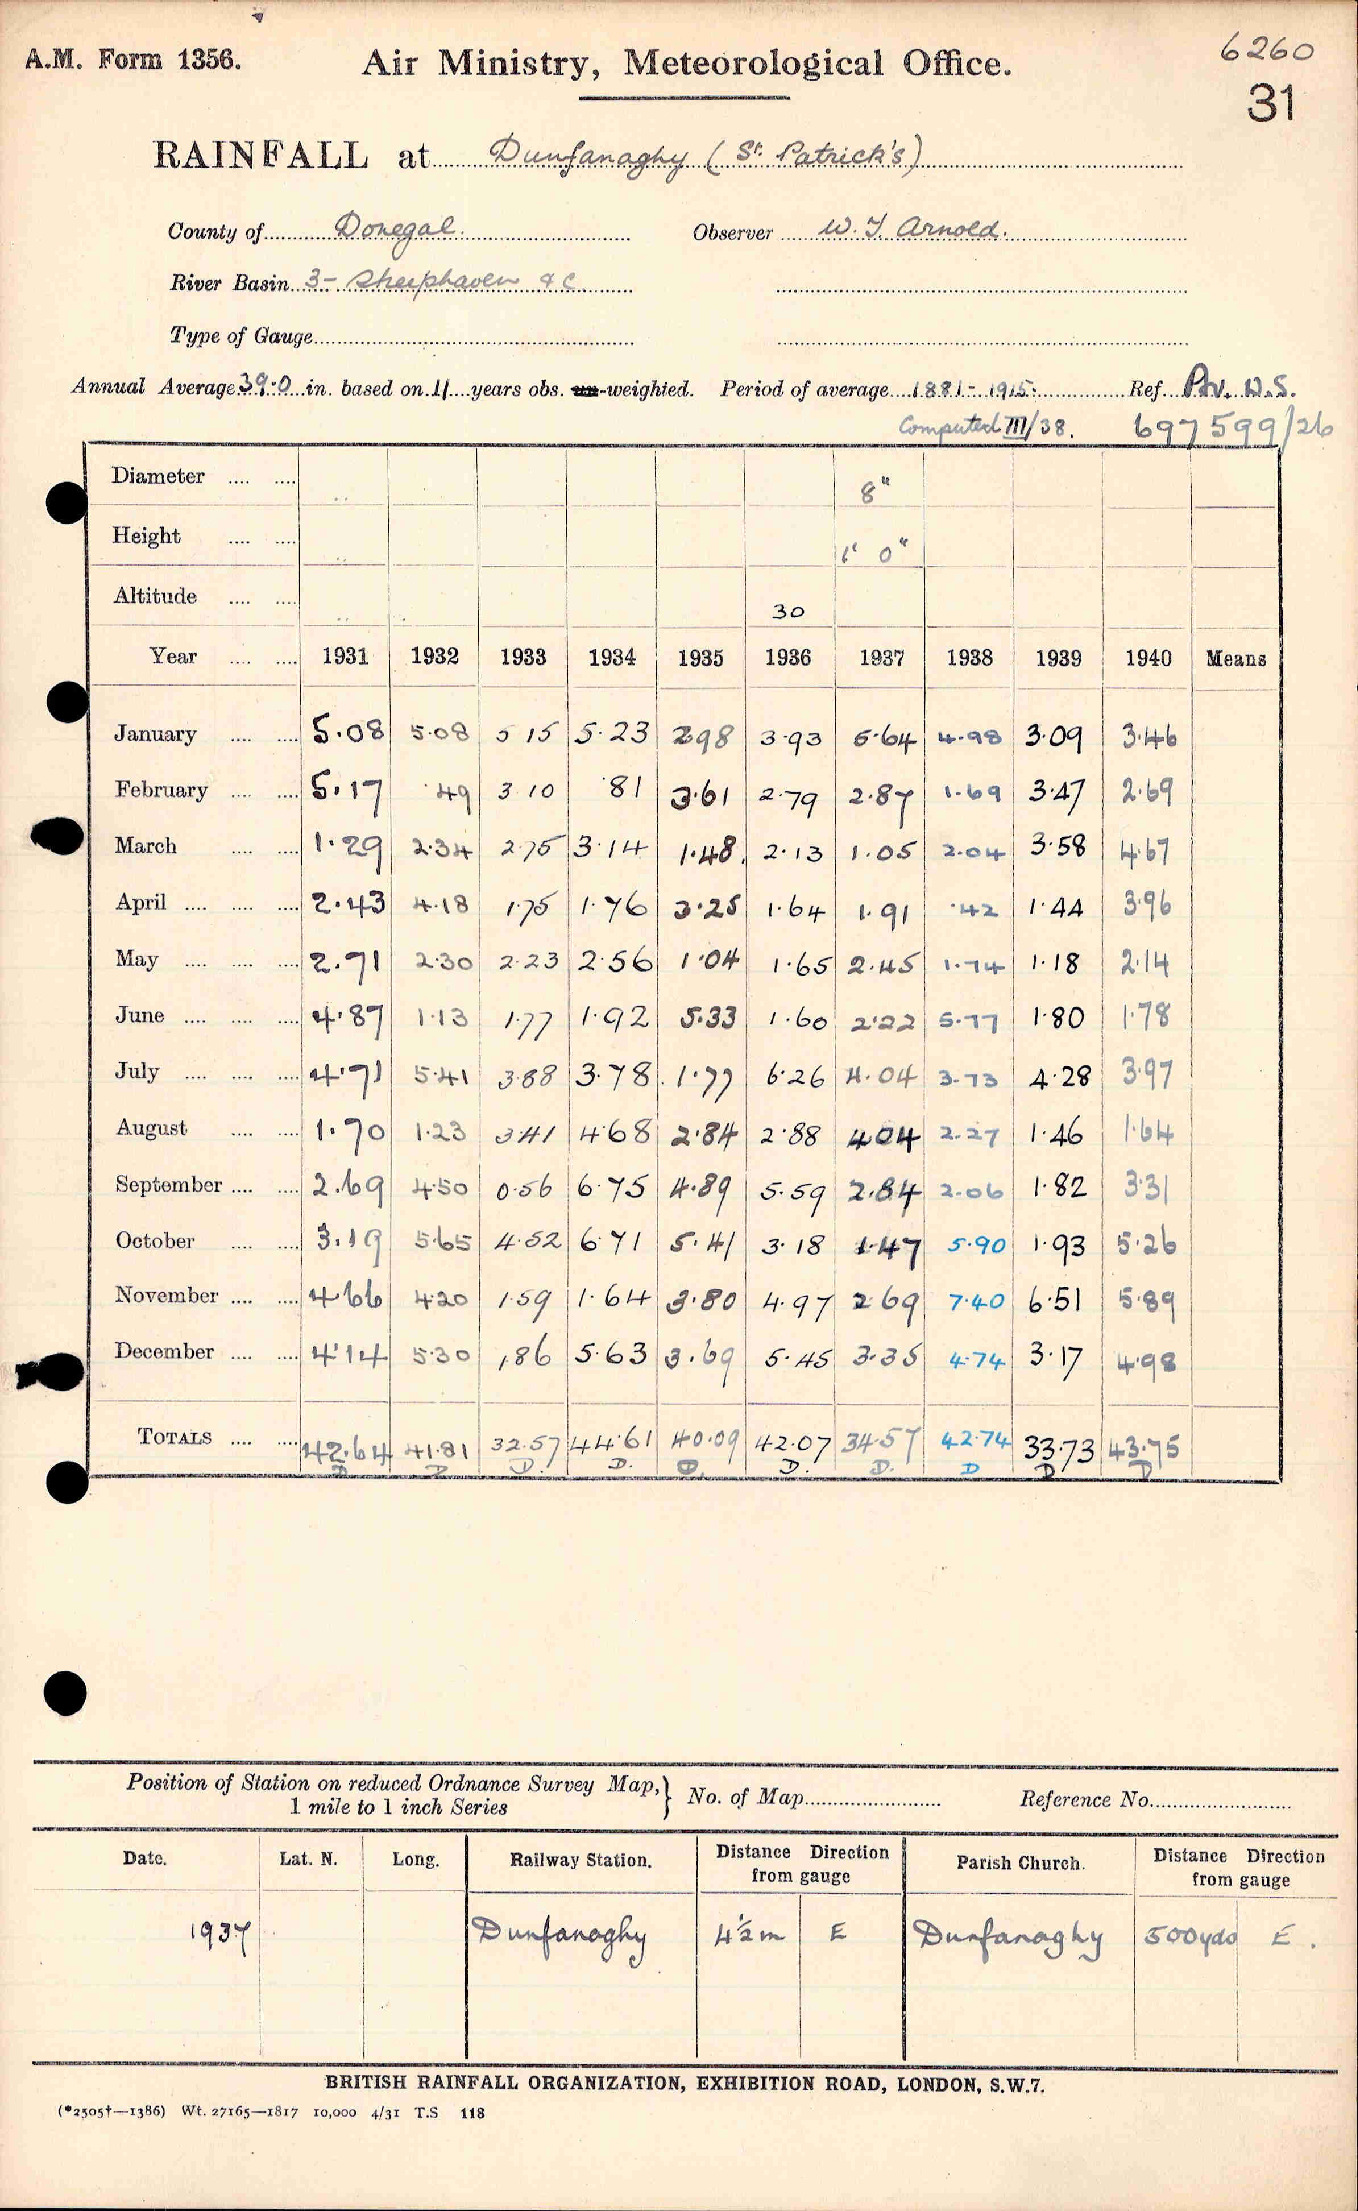 A.M. Form 1356.
Air Ministry, Meteorological Office.
6260
31
RAINFALL at Dunfanaghy (St. Patrick's)
County of Donegal. Observer W. J. Arnold.
River Basin 3- Sheephaven &c
Type of Gauge
Annual Average 39.0 in. based on 11 years obs. un-weighted. Period of average 1881-1915. Ref. Pr. W.S.
Computed III/38. 697599/26
Diameter 8"
Height 1' 0"
Altitude 30
Year 1931 1932 1933 1934 1935 1936 1937 1938 1939 1940 Means
January 5.08 5.08 5 15 5.23 2.98 3.93 5.64 4.98 3.09 3.46
February 5.17 .49 3 10 .81 3.61 2.79 2.87 1.69 3.47 2.69
March 1.29 2.34 2.75 3.14 1.48 2.13 1.05 2.04 3.58 4.67
April 2.43 4.18 1.75 1.76 3.25 1.64 1.91 .42 1.44 3.96
May 2.71 2.30 2.23 2.56 1.04 1.65 2.45 1.74 1.18 2.14
June 4.87 1.13 1.77 1.92 5.33 1.60 2.22 5.77 1.80 1.78
July 4.71 5.41 3.88 3.78 1.77 6.26 4.04 3.73 4.28 3.97
August 1.70 1.23 3.41 4.68 2.84 2.88 4.04 2.27 1.46 1.64
September 2.69 4.50 0.56 6.75 4.89 5.59 2.84 2.06 1.82 3.31
October 3.19 5.65 4.52 6.71 5.41 3.18 1.47 5.90 1.93 5.26
November 4.66 4.20 1.59 1.64 3.80 4.97 2.69 7.40 6.51 5.89
December 4.14 5.30 1.86 5.63 3.69 5.45 3.35 4.74 3.17 4.98
TOTALS 42.64 41.81 32.57 44.61 40.09 42.07 34.57 42.74 33.73 43.75
D D D. D. D. D. D. D D D
Position of Station on reduced Ordnance Survey Map, No. of Map Reference No.
1 mile to 1 inch Series
Date. Lat. N. Long. Railway Station. Distance Direction from gauge Parish Church. Distance Direction from gauge
1937 Dunfanaghy 4½m E Dunfanaghy 500yds E.
BRITISH RAINFALL ORGANIZATION, EXHIBITION ROAD, LONDON, S.W.7.
(*2505†—1386) Wt. 27165—1817 10,000 4/31 T.S 118